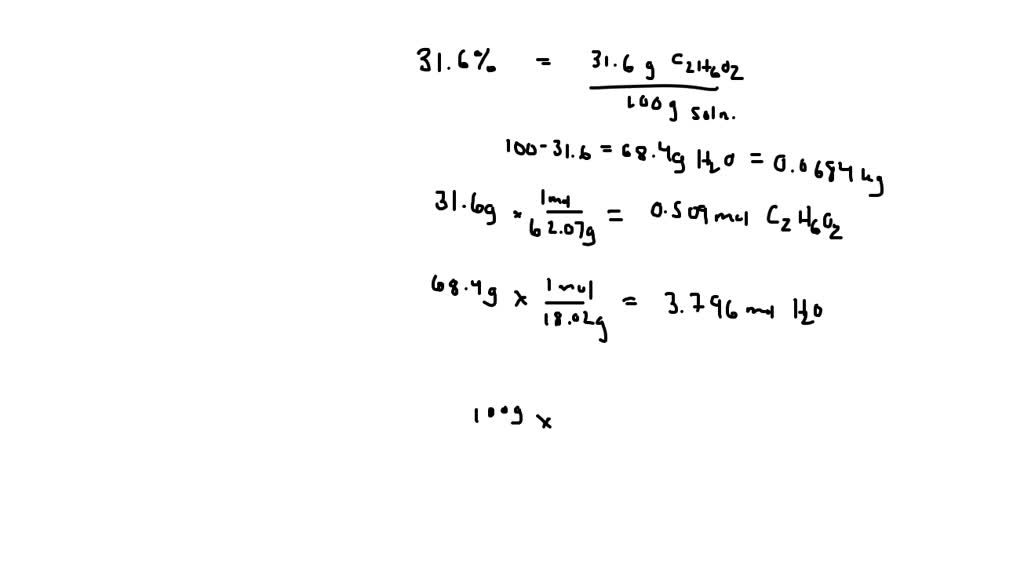 31.6% = 31.6 g C2H6O2
100 g soln.
100 - 31.6 = 68.4g H2O = 0.0684 kg
31.6g × 1mol / 62.07g = 0.509 mol C2H6O2
68.4g × 1 mol / 18.02g = 3.796 mol H2O
100g ×